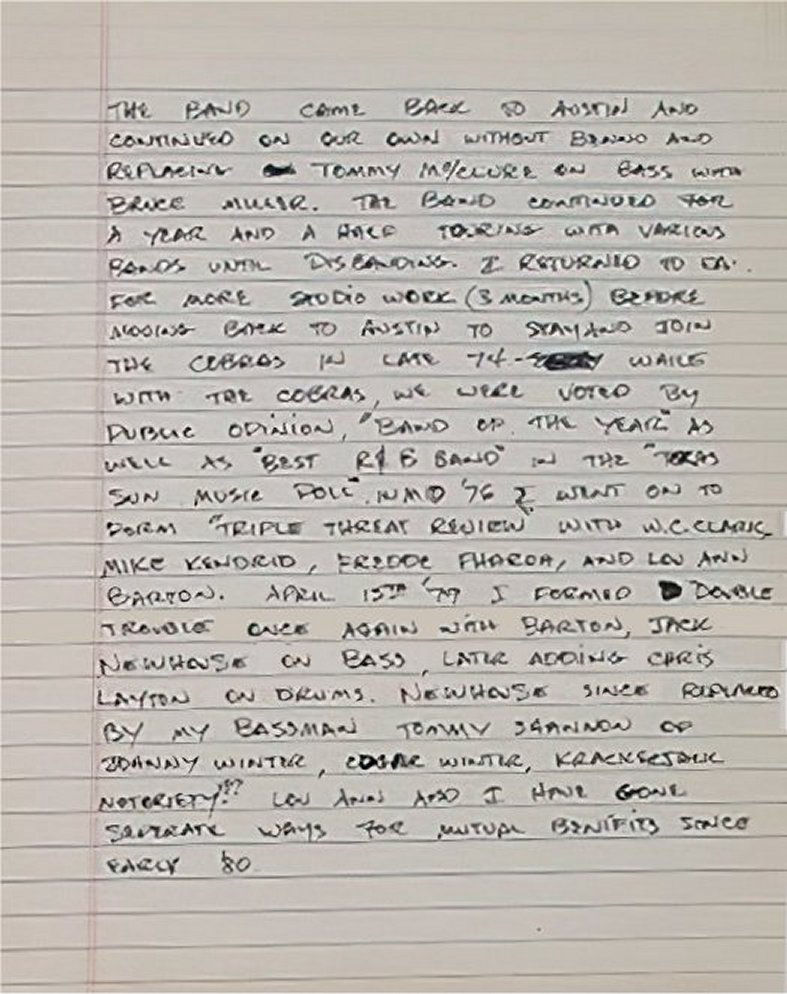 THE BAND CAME BACK TO AUSTIN AND
CONTINUED ON OUR OWN WITHOUT BENNO AND
REPLACING TOMMY McCLURE ON BASS WITH
BRUCE MILLER. THE BAND CONTINUED FOR
A YEAR AND A HALF TOURING WITH VARIOUS
BANDS UNTIL DISBANDING. I RETURNED TO LA.
FOR MORE STUDIO WORK (3 MONTHS) BEFORE
MOVING BACK TO AUSTIN TO STAY AND JOIN
THE COBRAS IN LATE 74- WHILE
WITH THE COBRAS, WE WERE VOTED BY
PUBLIC OPINION, "BAND OF THE YEAR" AS
WELL AS "BEST R&B BAND" IN THE "TEXAS
SUN MUSIC POLL". IN MID '76 I WENT ON TO
FORM "TRIPLE THREAT REVIEW" WITH W.C. CLARK,
MIKE KENDRID, FREDDE PHAROA, AND LOU ANN
BARTON. APRIL 15TH '79 I FORMED DOUBLE
TROUBLE ONCE AGAIN WITH BARTON, JACK
NEWHOUSE ON BASS, LATER ADDING CHRIS
LAYTON ON DRUMS. NEWHOUSE SINCE REPLACED
BY MY BASSMAN TOMMY SHANNON OF
JOHNNY WINTER, EDGAR WINTER, KRACKERJACK
NOTORIETY!?? LOU ANN AND I HAVE GONE
SEPERATE WAYS FOR MUTUAL BENIFITS SINCE
EARLY '80